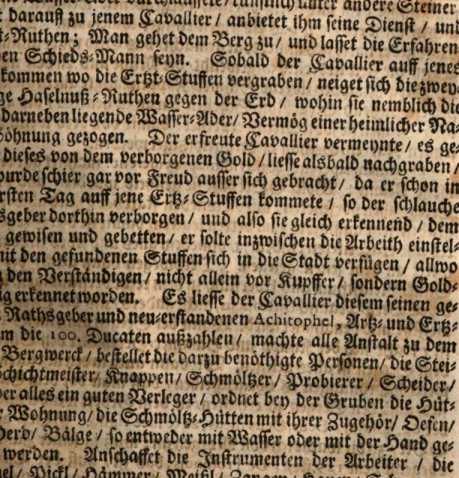 Wasser-Ader durchlauffete / künstlich unter andere Steiner
darauß zu jenem Cavallier / anbietet ihm seine Dienst / und
t-Ruthen; Man gehet dem Berg zu / und lasset die Erfahren
en Schieds-Mann seyn. Sobald der Cavallier auff jenes
kommen wo die Ertzt-Stuffen vergraben / neiget sich die zwey-
ge Haselnuß-Ruthen gegen der Erd / wohin sie nemblich die
darneben liegende Wasser-Ader / Vermög einer heimlicher Na-
öhnung gezogen. Der erfreute Cavallier vermeynte / es ge-
dieses von dem verborgenen Gold / liesse alsbald nachgraben /
wurde schier gar vor Freud ausser sich gebracht / da er schon in
rsten Tag auff jene Ertz-Stuffen kommete / so der schlauche
sgeber dorthin verborgen / und also sie gleich erkennend / dem
gewisen und gebetten / er solte inzwischen die Arbeith einstel-
mit den gefundenen Stuffen sich in die Stadt verfügen / allwo
den Verständigen / nicht allein vor Kupffer / sondern Gold-
ig erkennet worden. Es liesse der Cavallier diesem seinen ge-
Rathsgeber und neu-erstandenen Achitophel, Artz- und Ertz-
m die 100. Ducaten außzahlen / machte alle Anstalt zu dem
Bergwerck / bestellet die darzu benöthigte Personen / die Stei-
Schichtmeister / Knappen / Schmöltzer / Probierer / Scheider /
er alles ein guten Verleger / ordnet bey der Gruben die Hüt-
r Wohnung / die Schmöltz-Hütten mit ihrer Zugehör / Oefen /
Herd / Bälge / so entweder mit Wasser oder mit der Hand ge-
werden. Anschaffet die Instrumenten der Arbeiter / die
el / Pickl / Hämmer / Meißl /